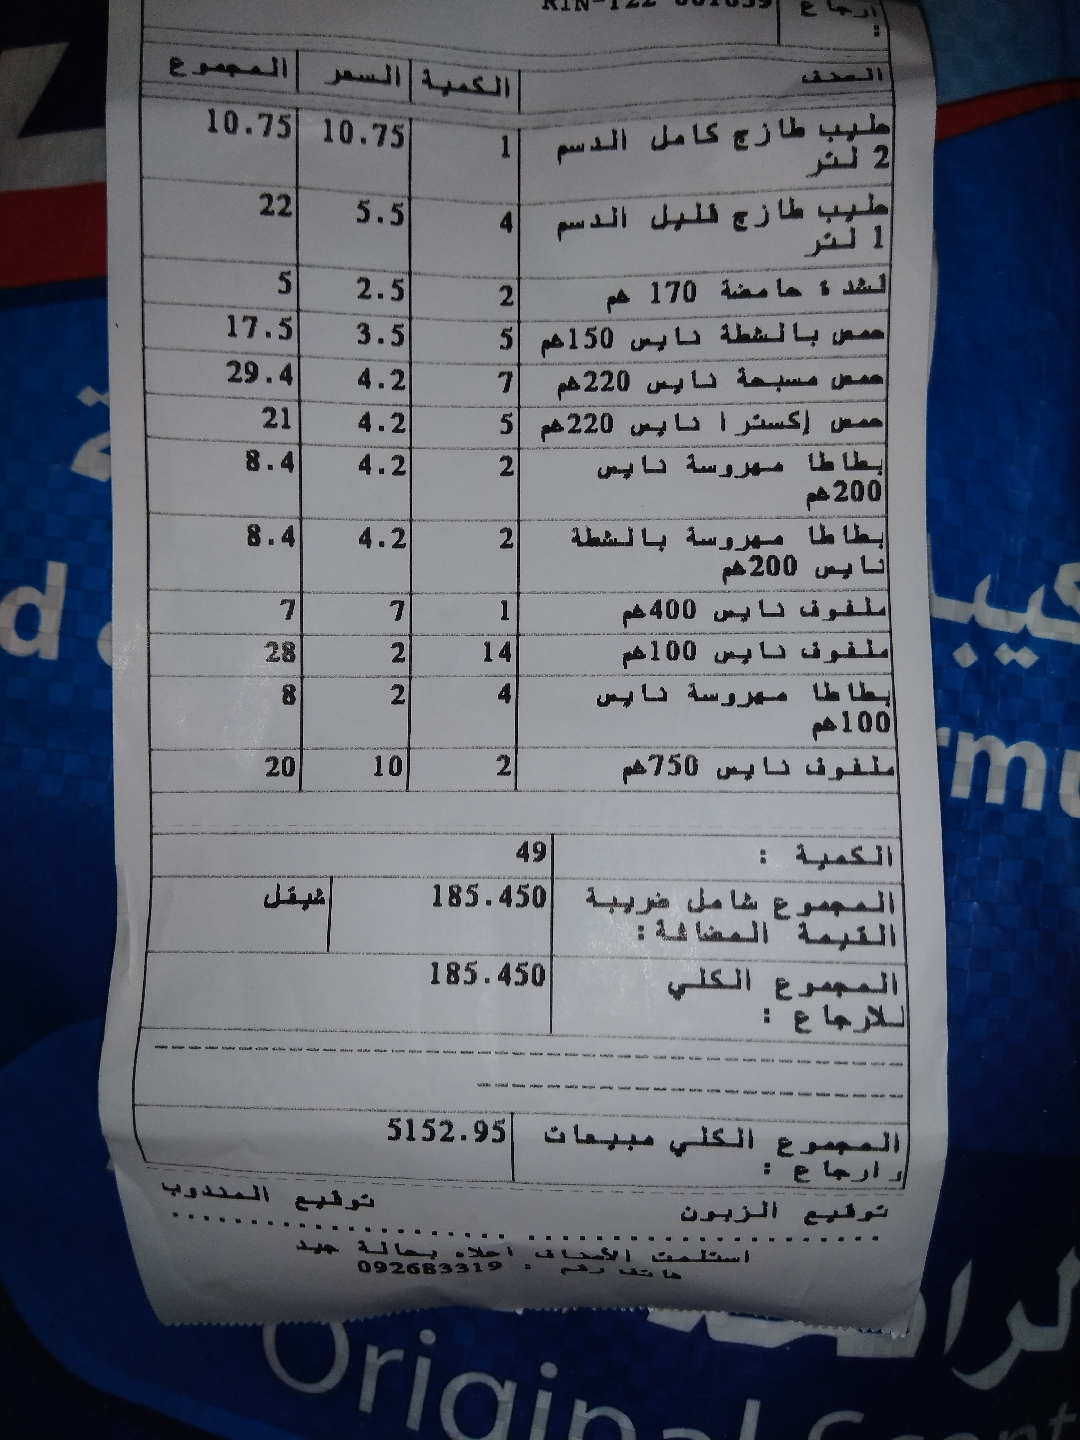 ارجاع RIN-122 001839
:
الصنف الكمية السعر المجموع
حليب طازج كامل الدسم 1 10.75 10.75
2 لتر
حليب طازج قليل الدسم 4 5.5 22
1 لتر
لشدة حامضة 170 غم 2 2.5 5
حمص بالشطة نايس 150غم 5 3.5 17.5
حمص مسبحة نايس 220غم 7 4.2 29.4
حمص إكسترا نايس 220غم 5 4.2 21
بطاطا مهروسة نايس 2 4.2 8.4
200غم
بطاطا مهروسة بالشطة 2 4.2 8.4
نايس 200غم
ملفوف نايس 400غم 1 7 7
ملفوف نايس 100غم 14 2 28
بطاطا مهروسة نايس 4 2 8
100غم
ملفوف نايس 750غم 2 10 20
الكمية : 49
المجموع شامل ضريبة 185.450 شيقل
القيمة المضافة :
المجموع الكلي 185.450
للارجاع :
المجموع الكلي مبيعات 5152.95
وارجاع :
توقيع الزبون توقيع المندوب
استلمت الأصناف اعلاه بحالة جيد
هاتف رقم : 092683319
Original Scent